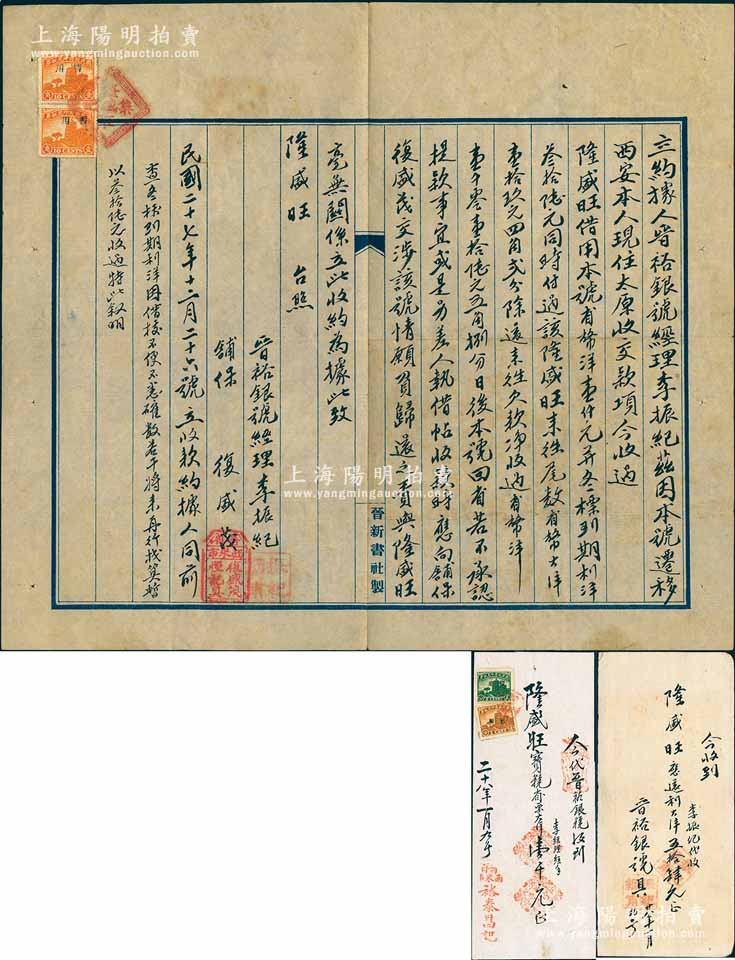 上海陽明拍賣
www.yangmingauction.com
立約據人晋裕銀號經理李振紀茲因本號遷移
西安本人現住太原收交款項今收過
隆盛旺借用本號省幣洋壹仟元并冬標到期利洋
叁拾陸元同時付過該隆盛旺來往尾数省幣大洋
壹拾玖元四角弍分除還来往欠款净收過省幣洋
壹千零壹拾陸元五角捌分日後本號回省若不承認
提款事宜或是另差人執借帖收款時應向舖保
復盛茂交涉該號情願負歸還之責與隆盛旺
毫無關係立此收約為據此致
隆盛旺 台照
晋裕銀號經理李振紀
舖保 復盛茂
民國二十七年十二月二十六號立收款約據人同前
查冬標到期利洋因借後不便不悉確数若干將来再行找算暫
以叁拾陸元收過特此叙明
晉新書社製
今代晋裕銀號收到
李經理經手
隆盛旺寶號
壹千元正
二十八年一月
今收到
李振紀代收
隆盛旺應還利大洋五拾肆元正
晋裕銀號具